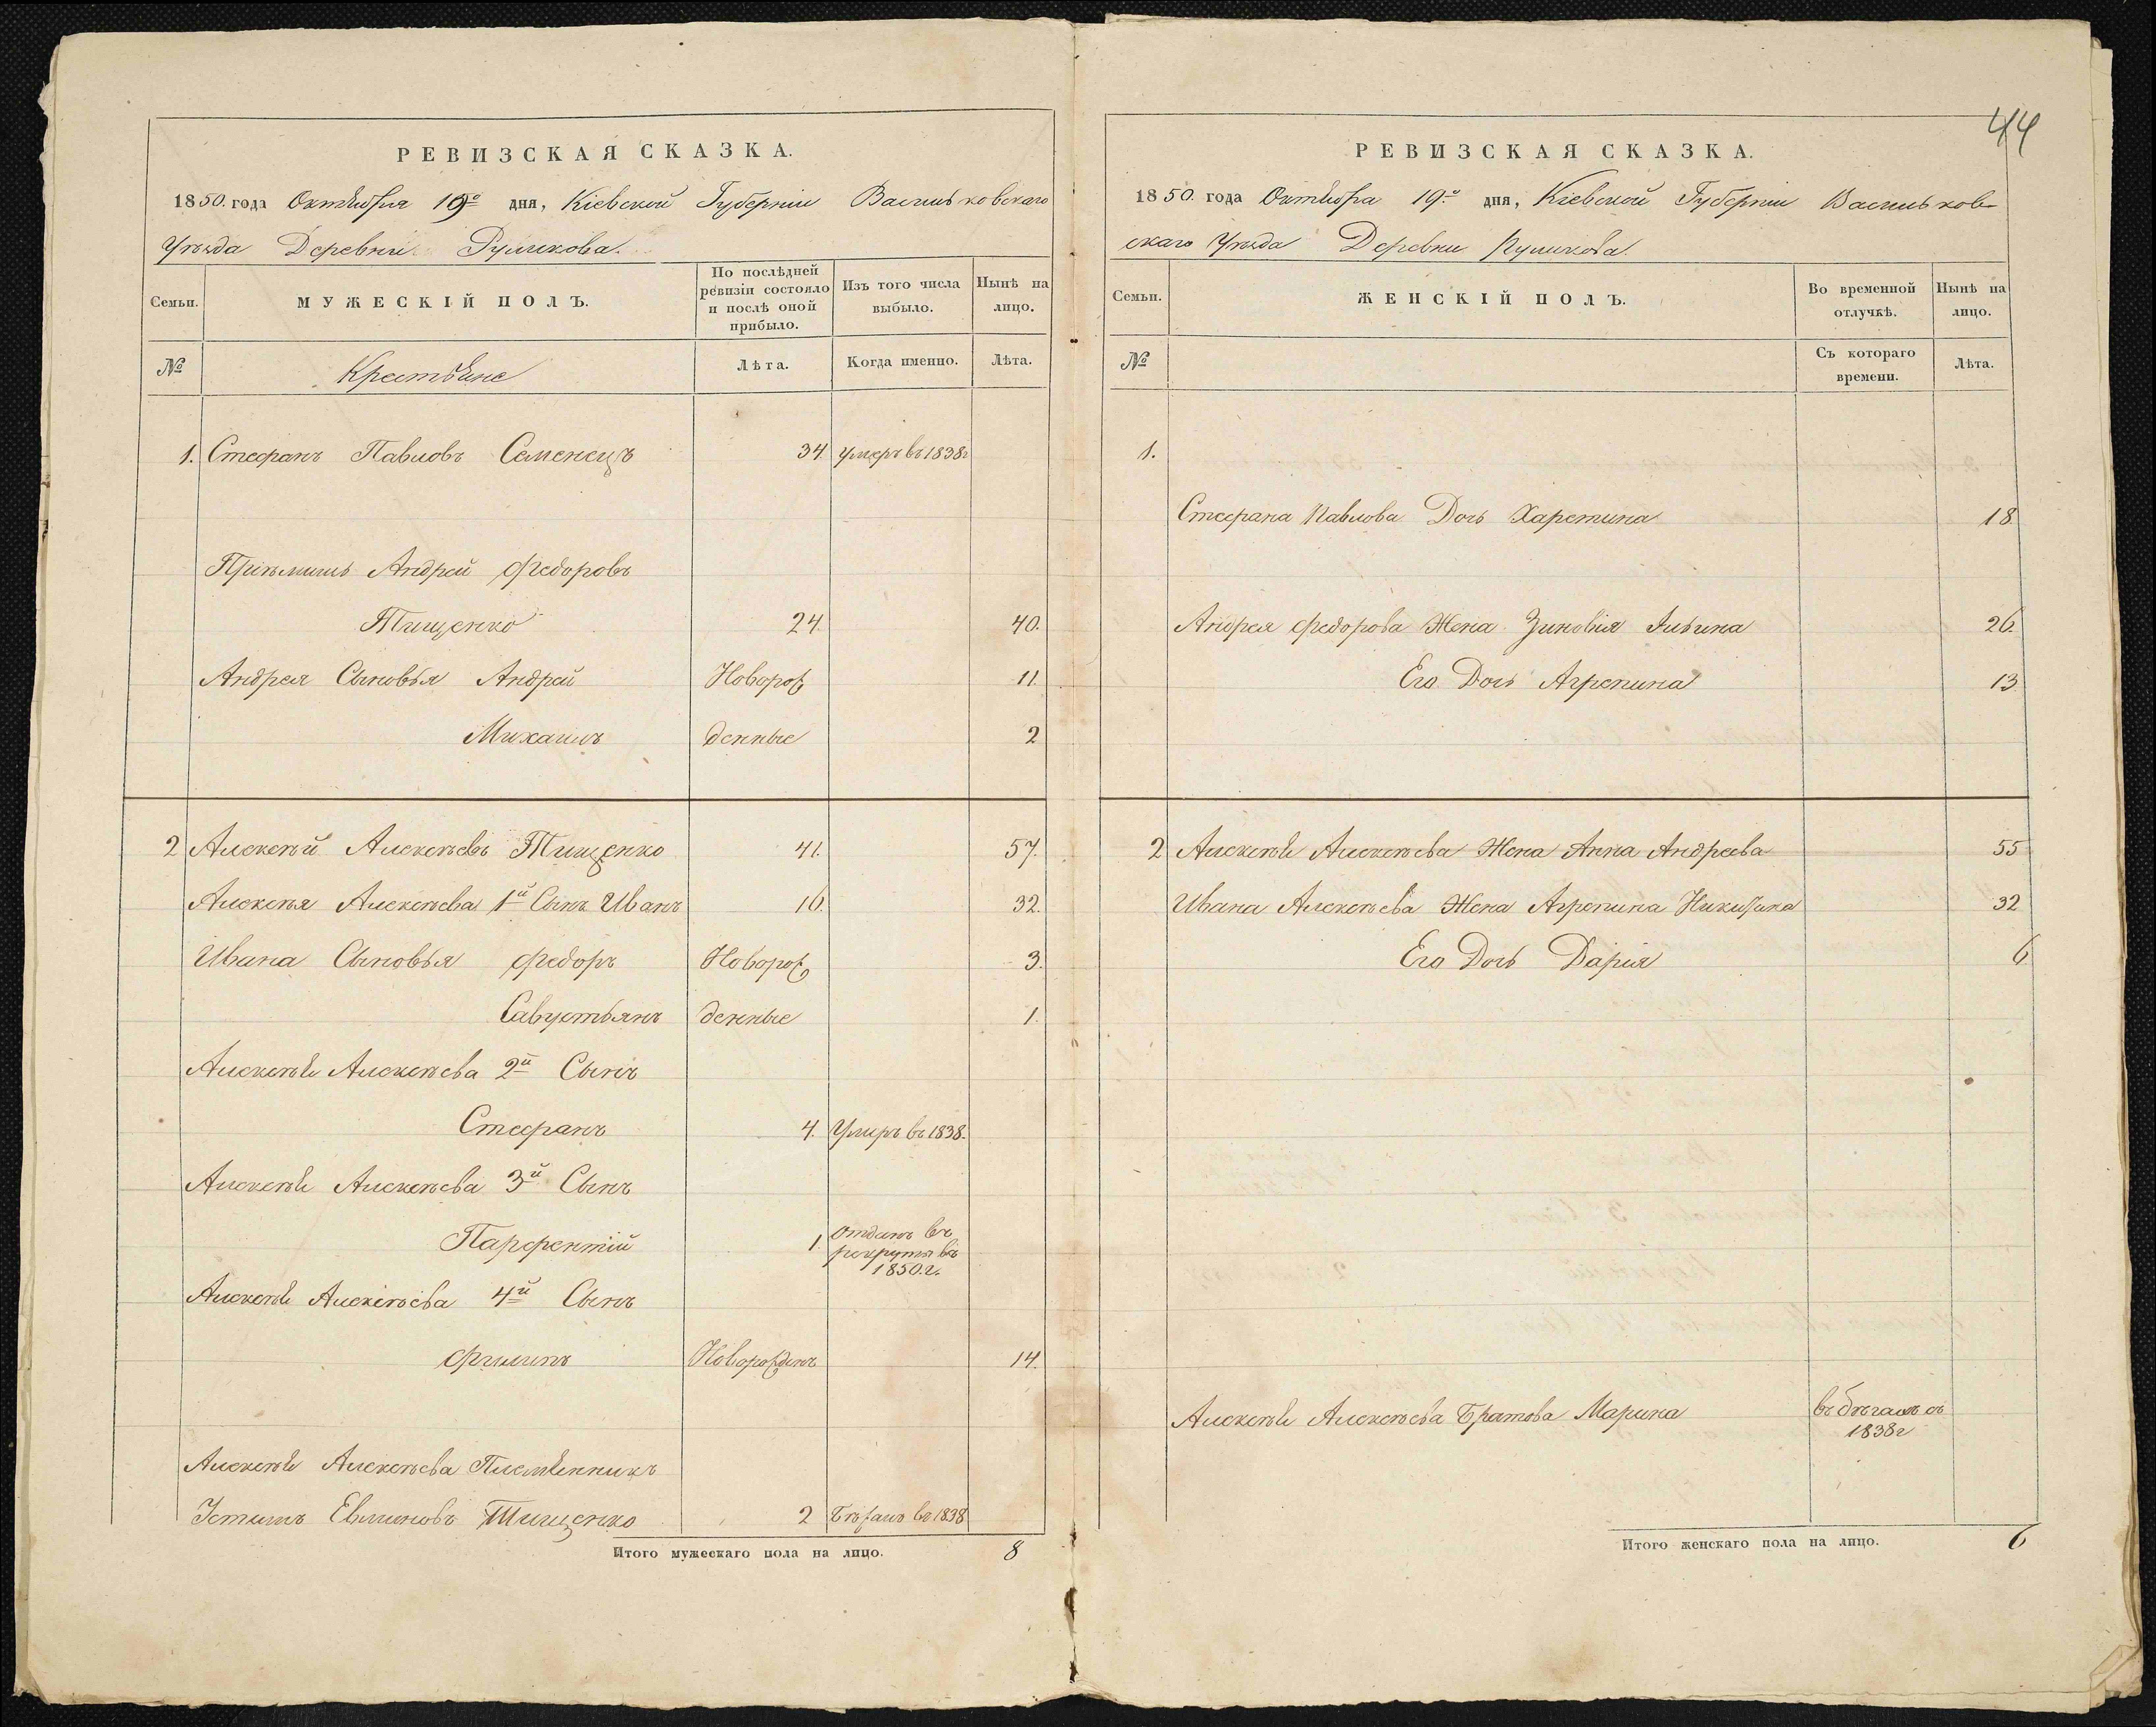 РЕВИЗСКАЯ СКАЗКА.
1850. года Октября 19го дня, Кіевской Губерніи Васильковскаго
Уѣзда Деревни Руликова.
Семьи.
МУЖЕСКІЙ ПОЛЪ.
По послѣдней
ревизіи состояло
и послѣ оной
прибыло.
Изъ того числа
выбыло.
Нынѣ на
лицо.
№
Крестьяне
Лѣта.
Когда именно.
Лѣта.
1. Стефанъ Павловъ Семенецъ 34 умеръ въ 1838г
Пріемышъ Андрей Федоровъ
Тищенко 24. 40.
Андрея Сыновья Андрей Новорож 11.
Михаилъ денные 2
2 Алексѣй Алексѣевъ Тищенко 41. 57.
Алексѣя Алексѣева 1й Сынъ Иванъ 16. 32.
Ивана Сыновья Федоръ Новорож 3.
Савустьянъ денные 1.
Алексѣя Алексѣева 2й Сынъ
Стефанъ 4. Умеръ въ 1838.
Алексѣя Алексѣева 3й Сынъ
Парфентій 1. отданъ въ
рекруты въ
1850.г.
Алексѣя Алексѣева 4й Сынъ
Филипъ Новорожденъ 14.
Алексѣя Алексѣева Племянникъ
Устимъ Тищенко 2 Бѣжалъ въ 1838
Итого мужескаго пола на лицо. 8
44
РЕВИЗСКАЯ СКАЗКА.
1850. года Октября 19го дня, Кіевской Губерніи Васильков-
скаго Уѣзда Деревни Руликова.
Семьи.
ЖЕНСКІЙ ПОЛЪ.
Во временной
отлучкѣ.
Нынѣ на
лицо.
№
Съ котораго
времени.
Лѣта.
1.
Стефана Павлова Дочь Харетина 18
Андрея Федорова Жена Зиновія Ильина 26.
Его Дочь Агрепина 13
2 Алексѣя Алексѣева Жена Анна Андреева 55
Ивана Алексѣева Жена Агрепина Никитина 32
Его Дочь Дарія 6
Алексѣя Алексѣева Братова Марина въ бѣгахъ съ
1838г
Итого женскаго пола на лицо. 6